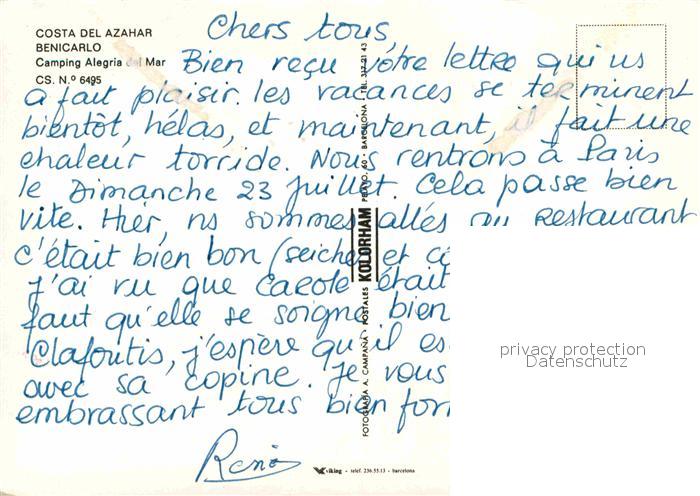 COSTA DEL AZAHAR
BENICARLO
Camping Alegria del Mar
CS. N.º 6495
Chers tous
Bien reçu vôtre lettre qui ns
a fait plaisir. les vacances se terminent
bientôt, hélas, et maintenant, il fait une
chaleur torride. Nous rentrons à Paris
le Dimanche 23 juillet. Cela passe bien
vite. Hier, ns sommes allés au Restaurant
c'était bien bon (seiches et
J'ai vu que Carole était
faut qu'elle se soigne bien
Clafoutis, j'espère qu'il es
avec sa copine. Je vous
embrassant tous bien for
FOTOGRAFIA A. CAMPAÑA · POSTALES KOLORHAM - 60 - BARCELONA
viking - telef. 236.55.13 - barcelona
privacy protection
Datenschutz